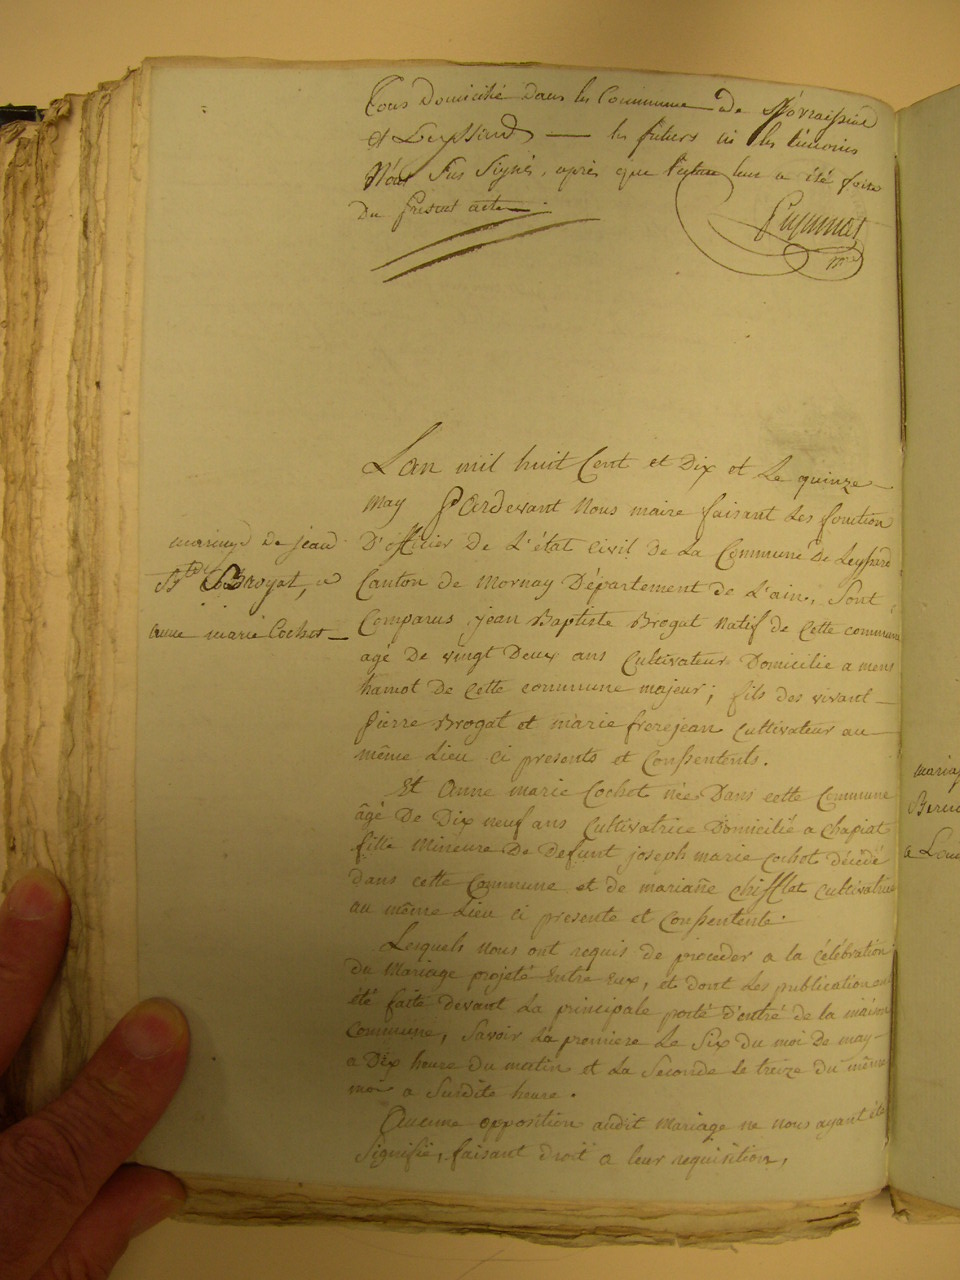 Tous Domicilié Dans les Commune de
et Leyssard — les futurs ni les témoins
N'ont sus Signés, après que lecture leur a été faite
Du présent acte
Puginier
mre
mariage de jean
Bte Brogat, a
anne marie Cochet
L'an mil huit Cent et Dix et Le quinze
may Pardevant Nous maire faisant Les fonction
D'officier De L'état Civil De La Commune De Leyssard
Canton de Mornay Département de L'ain, Sont
Comparus jean Baptiste Brogat Natif de Cette commune
agé De vingt Deux ans Cultivateur Domicilié a mens
hamot De cette commune majeur; fils des vivant
pierre Brogat et marie frerejean cultivateur au
même Lieu ci presents et Conssentents.
Et Anne marie Cochet née Dans cette Commune
âgé De Dix neuf ans Cultivatrice Domicilié a Chapiat
fille Mineure De Defunt joseph marie Cochet décédé
dans cette Commune et de mariane chifflet cultivatrice
au même Lieu ci presente et Conssentente.
Lesquels Nous ont requis de proceder a la célébration
du Mariage projeté Entre Eux, et dont Les publication ont
été faite devant La principale porte d'entré de la maison
Commune, Savoir La premiere Le Six du moi De may
a Dix heure du matin et La Seconde le treize du même
moi a Surdite heure.
Aucune opposition audit Mariage ne nous ayant été
Signifié, faisant droit a leur requisition,
mariag
a Lou